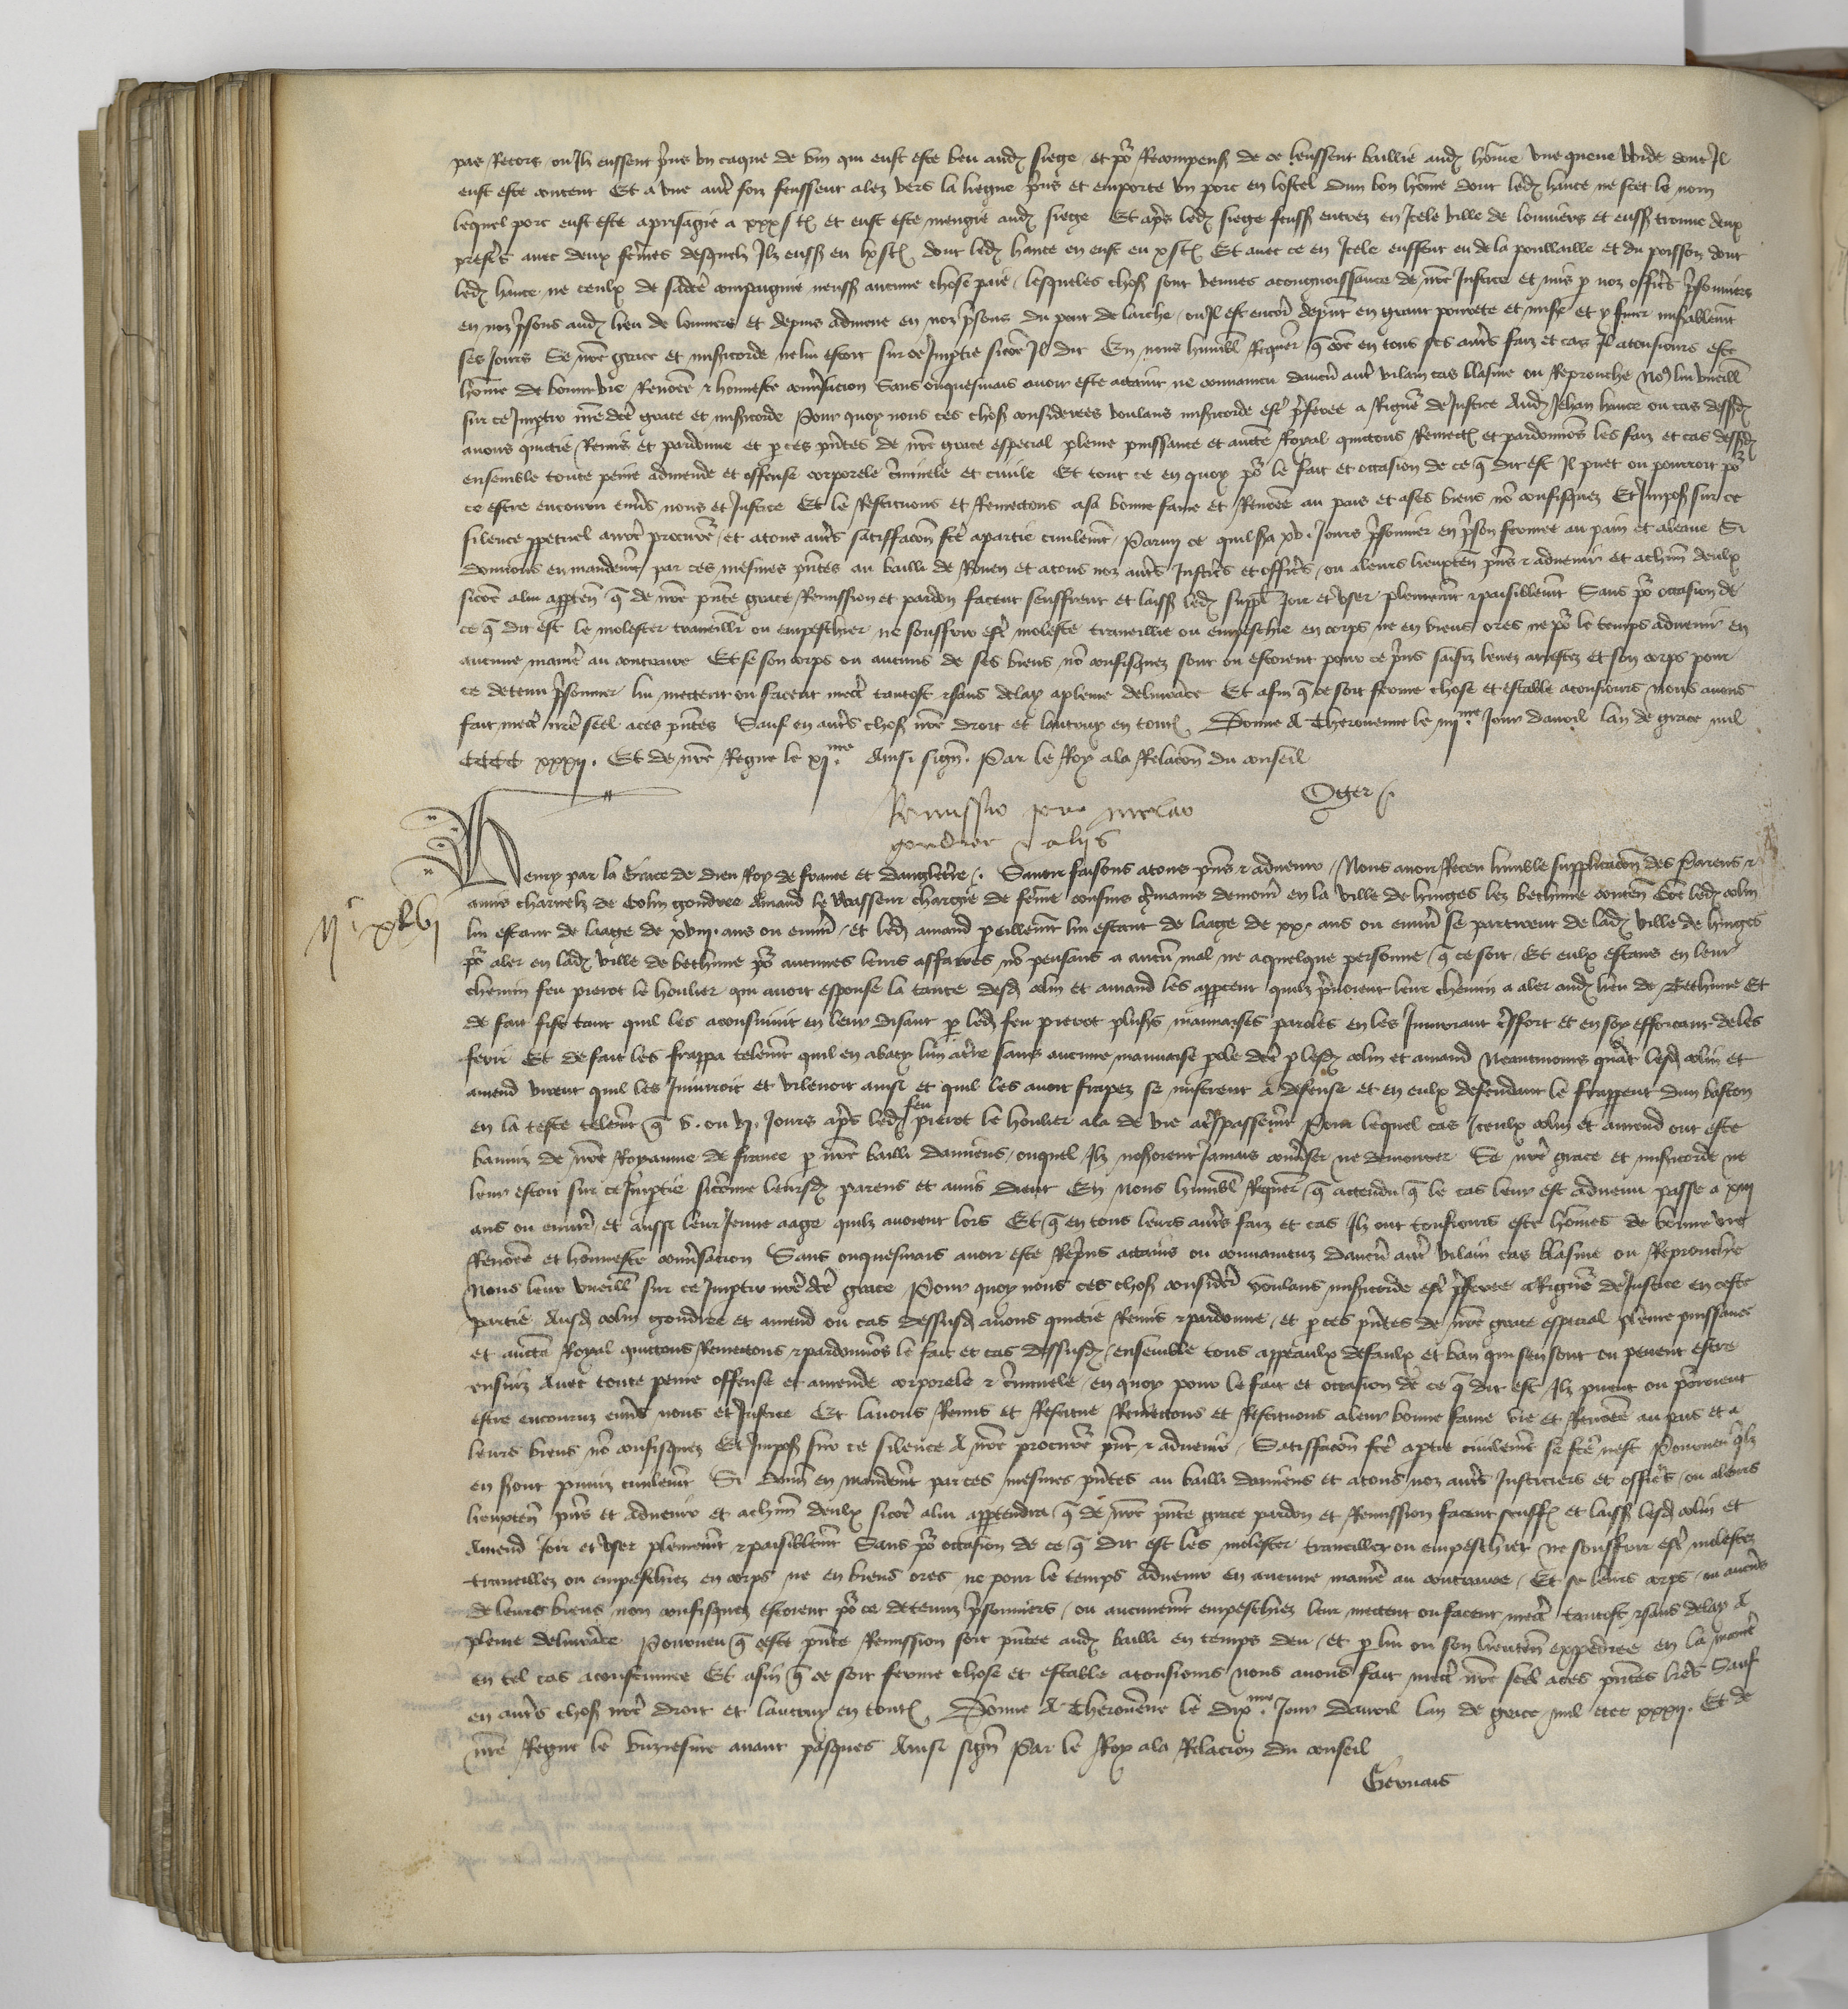 pas Recors ou Ilz eussent prins un caque de vin qui eust este beu audit siege et pour Recompense de ce leussent baillie audit homme une queue vvide dont Il
eust este content Et a une autre foiz feussent alez vers la hegue prins et emporte un porc en lostel dun bon homme dont ledit hance ne scet le nom
lequel porc eust este aprisagie a xxx s t et eust este mengie audit siege Et apres ledit siege feussent entrez en Icele ville de louviers et eussent trouve deux
prestres avec deux femmes desquelz Ilz eussent eu lx s t dont ledit hance en eust eu x s t Et avec ce en Icele eussent eu de la poullaille et du poisson dont
ledit hance ne ceulx de sadicte compaignie neussent aucune chose paie lesqueles choses sont venues a congnoissance de nostre Justice et mis par noz officiers prisonniers
en noz prisons audit lieu de louviers et depuis admene en noz prisons du pont de larche ou Il est encore depresent en grant povrete et misere et y finer miserablement
ses Jours Se nostre grace et misericorde ne lui estoit sur ce Impartie sicomme Il dit En nous humblement Requerant que comme en tous ses autres faiz et cas Il a tousjours este
homme de bonne vie Renommee et honneste conversacion Sans onquesmais avoir este attaint ne convaincu daucun autre vilain cas blasme ou Reprouche Nous lui vueillons
sur ce Impartir nostredicte grace et misericorde Pour quoy nous ces choses considerees voulans misericorde estre preferee a Rigueur de Justice Audit Jehan hance ou cas dessusdit
avons quictie Remis et pardonne et par ces presentes de nostre grace especial pleine puissance et auctorite Royal quictons Remectons et pardonnons les faiz et cas dessusdits
ensemble toute peine admende et offense corporele criminele et civile Et tout ce en quoy pour le fait et occasion de ce que dit est Il puet ou pourroit pour
ce estre encouru envers nous et Justice Et le Restituons et Remectons a sa bonne fame et Renommee au pais et a ses biens non confisquez Et Imposons sur ce
silence perpetuel a nostre procureur et a tous autres satisfacion faicte a partie civilement Parmi ce quil sera xv. Jours prisonnier en prison fermee au pain et a leaue Si
donnons en mandement par ces mesmes presentes au bailli de Rouen et a tous noz autres Justiciers et officiers ou a leurs lieuxtenans presens et advenir et a chascun deulx
sicomme a lui appartendra que de nostre presente grace Remission et pardon facent seuffrent et laissent ledit suppliant Joir et user plainement et paisiblement Sans pour occasion de
ce que dit est le molester traveillier ou empeschier ne souffrir estre moleste traveillie ou empeschie en corps ne en biens ores ne pour le temps advenir en
aucune maniere au contraire Et se son corps ou aucuns de ses biens non confisquez sont ou estoient pour ce prins saisiz levez arrestez et son corps pour
ce detenu prisonnier lui mectent ou facent mectre tantost et sans delay a pleine delivrance Et afin que ce soit ferme chose et estable a tousjours Nous avons
fait mectre nostre seel a ces presentes Sauf en autres choses nostre droit et lautruy en toutes Donne A Therouenne le iiiime Jour davril lan de grace mil
CCCC xxxij. Et de nostre Regne le xjme. Ainsi signe. Par le Roy a la Relacion du conseil
Oger
Remissio pro nicolao
gondree et aliis
Henry par la Grace de dieu Roy de france et dangleterre. Savoir faisons a tous presens et advenir Nous avoir Receu humble supplicacion des Parens et
amis charnelz de Colin gondree Amand le Vasseur chargie de femme cousins germains demourans en la ville de hinges lez bethune contenant Comme ledit colin
ijc xlvj
lui estant de laage de xviij. ans ou environ et ledit amand pareillement lui estant de laage de xx. ans ou environ se partirent de ladicte ville de hinges
pour aler en ladicte ville de bethune pour aucunes leurs affaires non pensans a aucun mal ne a quelque personne que ce soit Et eulx estans en leur
chemin feu pierot le houlier qui avoit espouse la tante desdits colin et amand les apperceut quilz prenoient leur chemin a aler audit lieu de Bethune Et
de fait fist tant quil les aconsuivit en leur disant par ledit feu pierot plusieurs mauvaises paroles en les Injuriant tresfort et en soy efforcant de les
ferir Et de fait les frappa telement quil en abaty lun a terre sans aucune mauvaise parole dicte par lesdits colin et amand Neantmoins quant lesdits colin et
amend virent quil les Injurioit et vilenoit ainsi et quil les avoit frapez se misrent a defense et en eulx defendant le frapperent dun baston
en la teste telement que v. ou vj. Jours apres ledit feu pierot le houlier ala de vie a trespassement Pour lequel cas Iceulx colin et amend ont este
banniz de nostre Royaume de france par nostre bailli damiens ouquel Ilz noseroient Jamais converser ne demourer Se nostre grace et misericorde ne
leur estoit sur ce Impartie sicomme leursdits parens et amis dient En Nous humblement Requerant que attendu que le cas leur est advenu passe a xiij
ans ou environ et aussi leur Jeune aage quilz avoient lors Et que en tous leurs autres faiz et cas Ilz ont tousjours este hommes de bonne vie
Renommee et honneste conversacion Sans onquesmais avoir este Reprins attains ou convaincuz daucun autre vilain cas blasme ou Reprouche
Nous leur vueillons sur ce Impartir nostredicte grace Pour quoy nous ces choses considerees voulans misericorde estre preferee a Rigueur de Justice en ceste
partie Ausdits colin gondree et amend ou cas dessusdit avons quictie Remis et pardonne et par ces presentes de nostre grace especial pleine puissance
et auctorite Royal quictons Remectons et pardonnons le fait et cas dessusdit ensemble tous appeaulx defaulx et ban qui sen sont ou pevent estre
ensuiz Avec toute peine offense et amende corporele et criminele en quoy pour le fait et occasion de ce que dit est Ilz puent ou pourroient
estre encouruz envers nous et Justice Et lavons Remis et Restitue Remectons et Restituons a leur bonne fame vie et Renommee au pais et a
leurs biens non confisquez Et Imposons sur ce silence A nostre procureur present et advenir Satisfacion faicte a partie civilement se faicte nest Pourveu quilz
en seront puniz civilement Si donnons en mandement par ces mesmes presentes au bailli damiens et a tous noz autres Justiciers et officiers ou a leurs
lieuxtenans presens et advenir et a chascun deulx sicomme a lui appartendra que de nostre presente grace pardon et Remission facent seuffrent et laissent lesdits colin et
Amend Joir et user plainement et paisiblement Sans pour occasion de ce que dit est les molester traveillier ou empeschier ne souffrir estre molestez
traveillez ou empeschiez en corps ne en biens ores ne pour le temps advenir en aucune maniere au contraire Et se leurs corps ou aucuns
de leurs biens non confisquez estoient pour ce detenuz prisonniers ou aucunement empeschiez leur mectent ou facent mectre tantost et sans delay A
pleine delivrance Pourveu que ceste presente Remission soit presentee audit bailli en temps deu et par lui ou son lieutenant expediee en la maniere
en tel cas acoustumee Et afin que ce soit ferme chose et estable a tousjours nous avons fait mectre nostre seel a ces presentes lectres Sauf
en autres choses nostre droit et lautruy en toutes Donne A Therouenne le dixme. Jour davril lan de grace mil cccc xxxij. Et de
nostre Regne le unziesme avant pasques Ainsi signe Par le Roy a la Relacion du conseil
Gervais